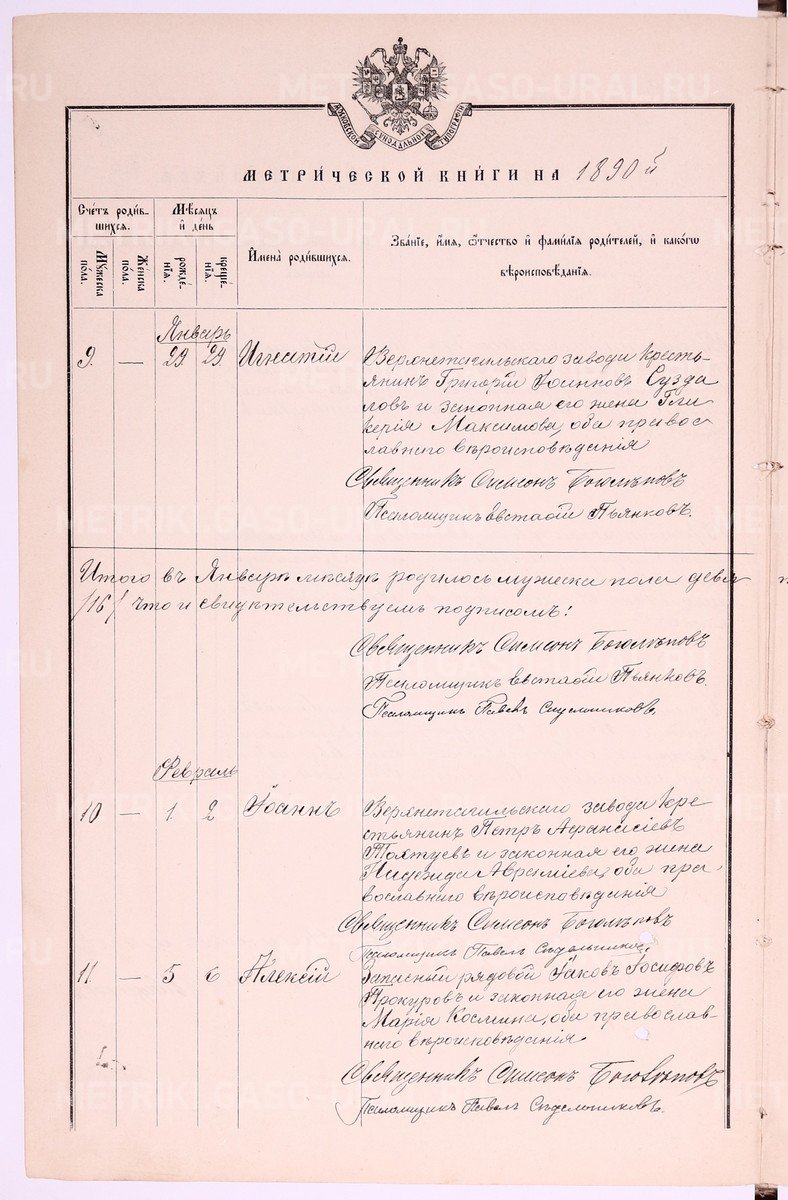 МОСКОВСКОЙ СѴНОДАЛЬНОЙ ТИПОГРАФІИ
МЕТРИ́ЧЕСКОЙ КНИ́ГИ НА 1890й
Сче́тъ роди́в-
шихся.
Мѣ́сяцъ
и҆ де́нь
Мꙋ́жеска по́ла.
Же́нска по́ла.
рожде́-нїѧ.
креще́-нїѧ.
И҆мена̀ роди́вшихся.
Зва́нїе, и҆́мѧ, ѻ҆́тчество и҆ фами́лїѧ роди́телей, и҆ како́гѡ
вѣроисповѣ́данїѧ.
Январь
9. — 29 29 Игнатій
Верхнетагильскаго завода кресть-
янинъ Григорій Іосифовъ Сузда
ловъ и законная его жена Гли
керія Максимова, оба правос
лавнаго вѣроисповѣданія
Священникъ Симеонъ Боголѣповъ
Псаломщикъ Евстафій Пьянковъ.
Итого въ Январѣ мѣсяцѣ родилось мужеска пола девя
/16/ что и свидѣтельствуемъ подписомъ!
Священникъ Симеонъ Боголѣповъ
Псаломщикъ Евстафій Пьянковъ.
Псаломщикъ Павелъ
Февраль
10 — 1 2 Іоаннъ
Верхнетагильскаго завода кре
стьянинъ Петръ Афанасіевъ
и законная его жена
Надежда Аврамiева, оба пра-
вославнаго вѣроисповѣданія
Священникъ Симеонъ Боголѣповъ
Псаломщикъ Павелъ Сѣдельниковъ
11. — 5 6 Алексій
Запасный рядовой Іаковъ Іосифовъ
Прокуровъ и законная его жена
Марія Космина, оба православ-
наго вѣроисповѣданія.
Священникъ Симеонъ Боголѣповъ
Псаломщикъ Павелъ Сѣдельниковъ.